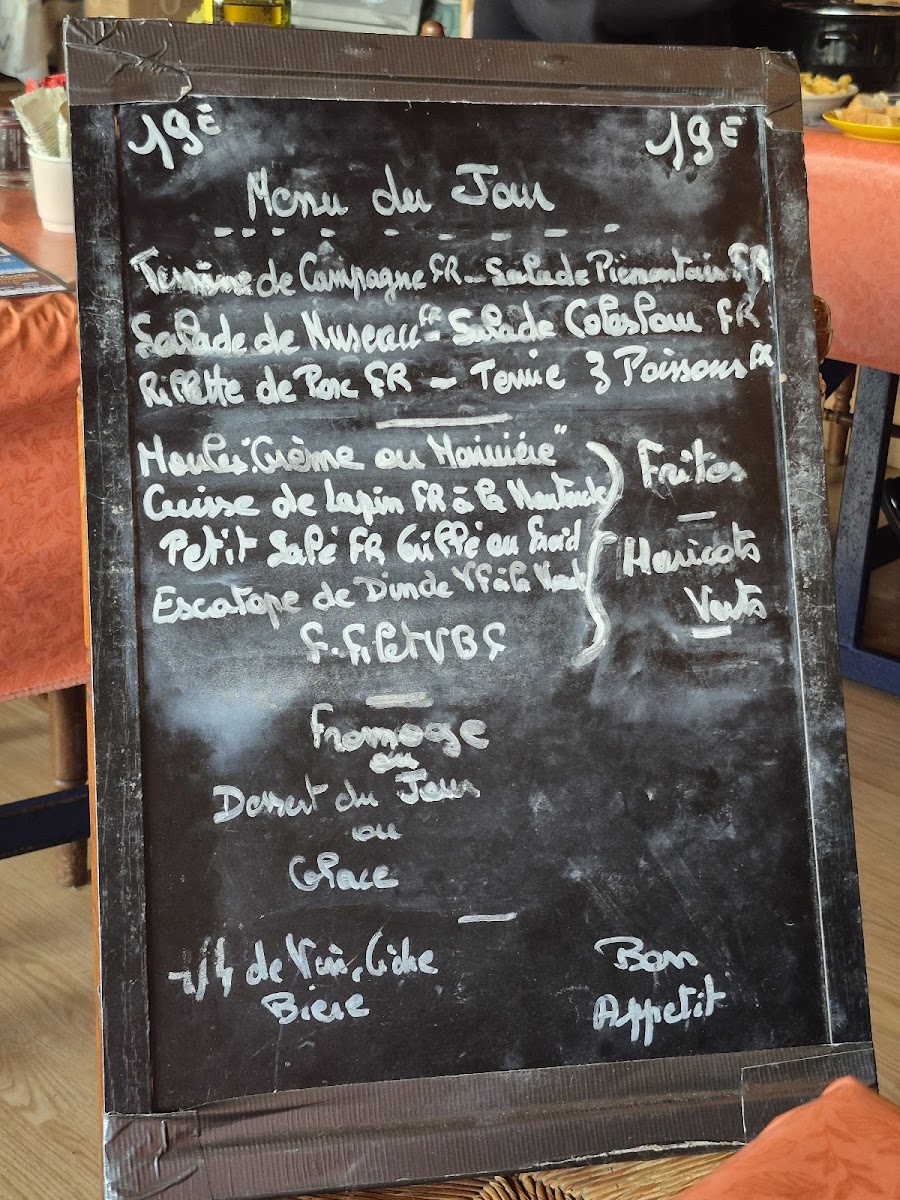 19€ 19€
Menu du Jour
Terrine de Campagne FR - Salade Piémontaise FR
Salade de Museau FR - Salade Coleslau FR
Rillette de Porc FR - Terrine 3 Poissons FR
Moules "Crème ou Marinière"
Cuisse de Lapin FR à la Moutarde
Petit Salé FR Grillé ou Froid
Escalope de Dinde VF à la
F. Filet VBF
Frites
Haricots
Verts
Fromage
ou
Dessert du Jour
ou
Glace
1/4 de Vin, Cidre
Biere
Bon
Appetit